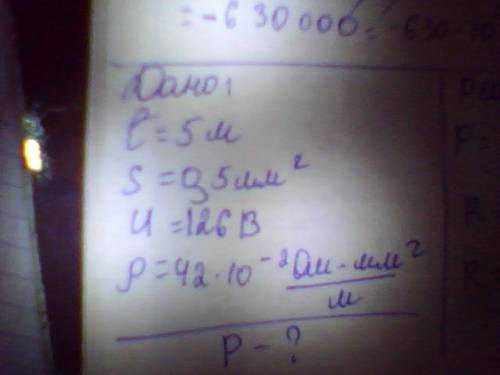 = -630000 = -630·10
Дано:
l = 5 м
S = 0,5 мм²
U = 126 В
ρ = 42·10⁻² Ом·мм²/м
P - ?
P =
R
R